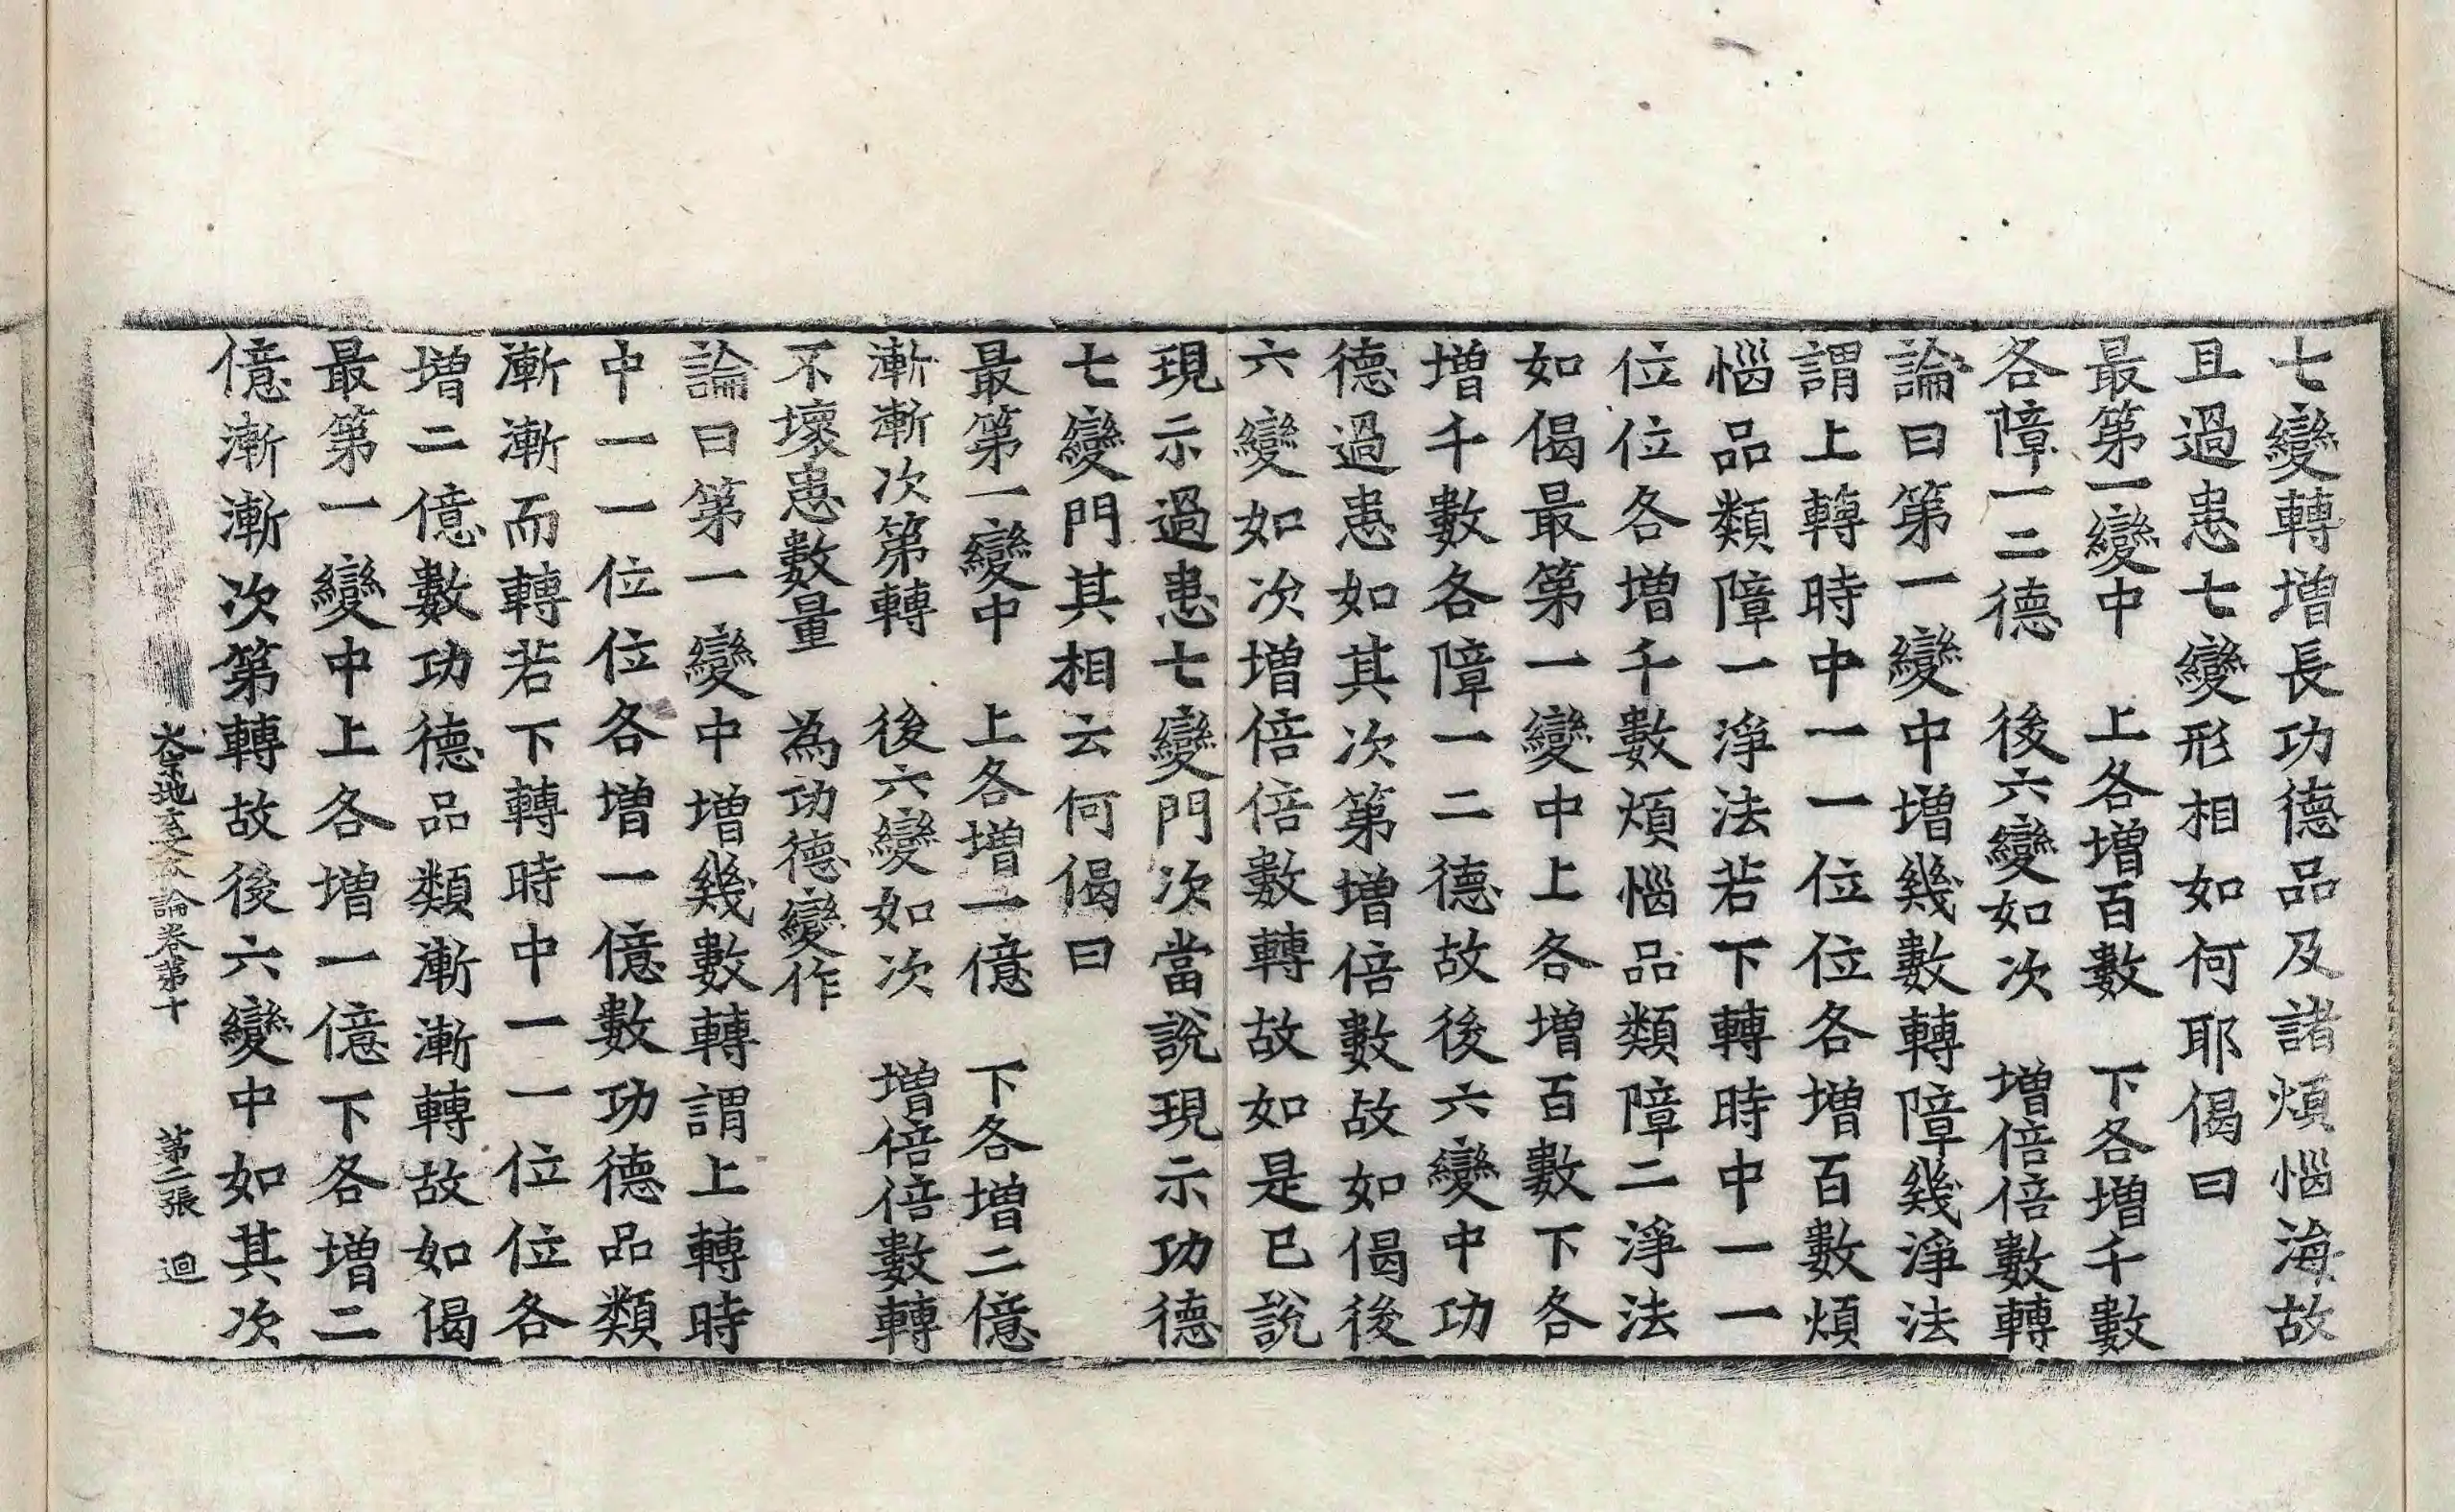 七變轉增長功德品及諸煩惱海故
且過患七變形相如何耶偈曰
最第一變中　上各增百數　下各增千數
各障一二德　後六變如次　增倍倍數轉
論曰第一變中增幾數轉障幾淨法
謂上轉時中一一位位各增百數煩
惱品類障一淨法若下轉時中一一
位位各增千數煩惱品類障二淨法
如偈最第一變中上各增百數下各
增千數各障一二德故後六變中功
德過患如其次第增倍數故如偈後
六變如次增倍倍數轉故如是已說
現示過患七變門次當說現示功德
七變門其相云何偈曰
最第一變中　上各增一億　下各增二億
漸漸次第轉　後六變如次　增倍倍數轉
不壞患數量　為功德變作
論曰第一變中增幾數轉謂上轉時
中一一位位各增一億數功德品類
漸漸而轉若下轉時中一一位位各
增二億數功德品類漸漸轉故如偈
最第一變中上各增一億下各增二
億漸漸次第轉故後六變中如其次
地玄文論卷第十　第二張　迴